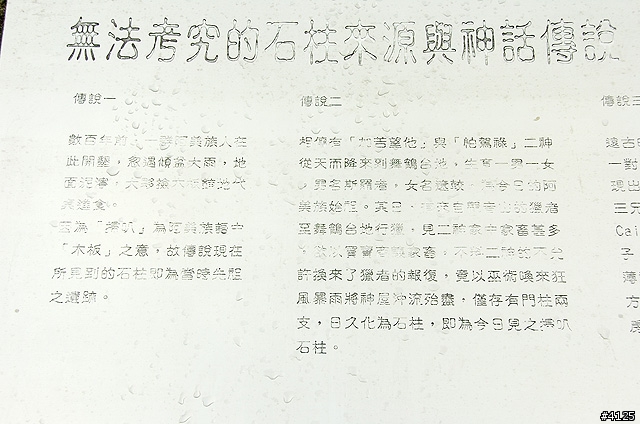 無法考究的石柱來源與神話傳說
傳說一
數百年前,一群阿美族人在
此開墾,忽遇傾盆大雨,地
面泥濘,大夥搶木板鋪地代
因為「掃叭」為阿美族語中
「木板」之意,故傳說現在
所見到的石柱即為當時先祖
之遺跡。
傳說二
相傳有「加苦望他」與「帕駕祿」二神
從天而降來到舞鶴台地,生育一男一女
男名斯羅者,女名
美族始祖。某日,
至舞鶴台地行獵,見二神家中家畜甚多
許換來了獵者的報復,竟以巫術喚來狂
風暴雨將神屋沖流殆盡,僅存有門柱兩
支,日久化為石柱,即為今日見之掃叭
石柱。
傳說三
遠古
一對
現出
三兄
Cai
子
薄
方
#4125